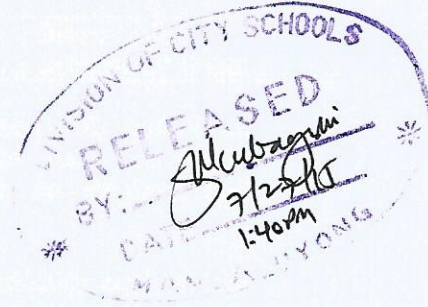 DIVISION OF CITY SCHOOLS
RELEASED
BY:
DATE
7/27/15
1:40PM
MANDALUYONG